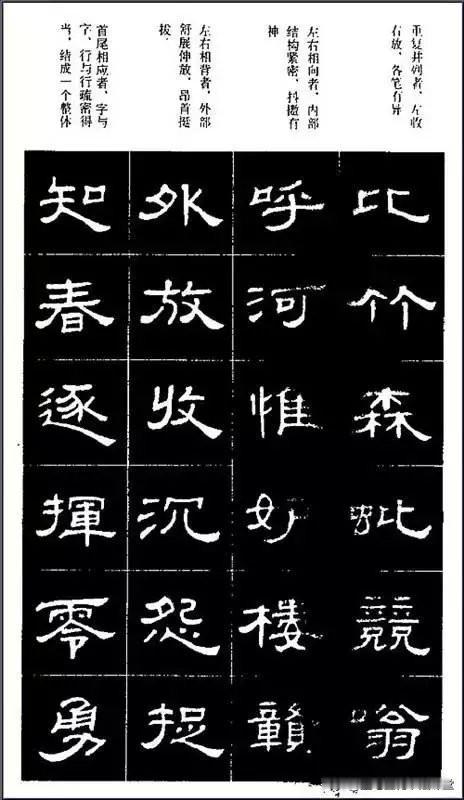 重复并列者、左收
右放，各笔有异
左右相向者，内部
结构紧密，抖擞有
神
左右相背者，外部
舒展伸放，昂首挺
拔
首尾相应者，字与
字、行与行疏密得
当，结成一个整体
比竹森競嗡
呼河惟好楼
外放收沉怨捉
知春逐揮零勇